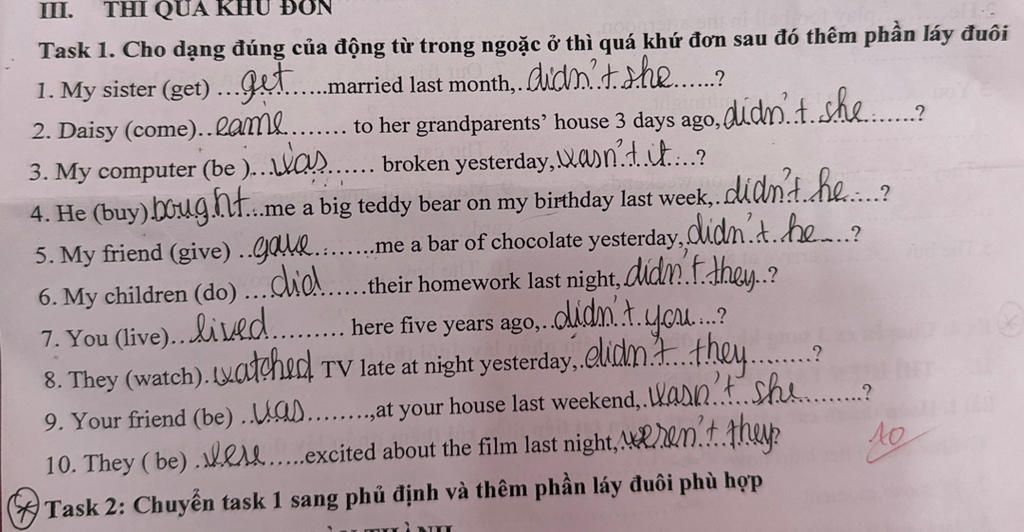 III. THÌ QUÁ KHỨ ĐƠN
Task 1. Cho dạng đúng của động từ trong ngoặc ở thì quá khứ đơn sau đó thêm phần láy đuôi
1. My sister (get) ...get......married last month,.didn't she......?
2. Daisy (come)..came........ to her grandparents' house 3 days ago,didn't she......?
3. My computer (be )...was...... broken yesterday,wasn't it...?
4. He (buy).bought...me a big teddy bear on my birthday last week,.didn't he....?
5. My friend (give) ..gave........me a bar of chocolate yesterday,didn't he....?
6. My children (do) ....did......their homework last night,didn't they..?
7. You (live)..lived......... here five years ago,..didn't you...?
8. They (watch).watched TV late at night yesterday,.didn't they........?
9. Your friend (be) ..was.........,at your house last weekend,.wasn't she.........?
10. They ( be) .were.....excited about the film last night,weren't they?
10
Task 2: Chuyển task 1 sang phủ định và thêm phần láy đuôi phù hợp